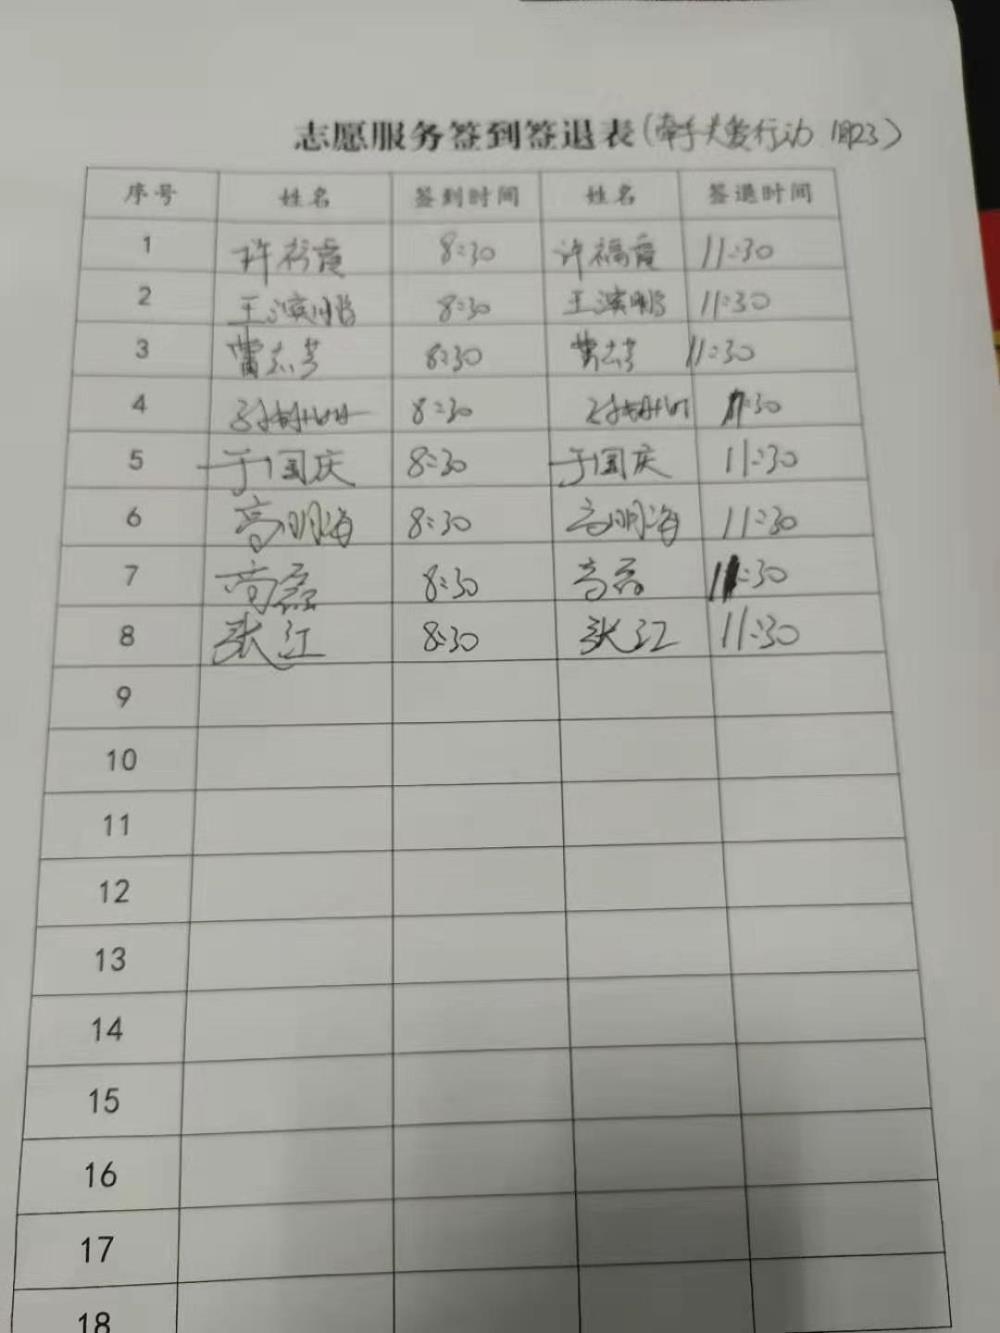 志愿服务签到签退表(牵手关爱行动 1月23)
序号 姓名 签到时间 姓名 签退时间
1 许福霞 8:30 许福霞 11:30
2 王滨鹏 8:30 王滨鹏 11:30
3 曹志芳 8:30 曹志芳 11:30
4 8:30 11:30
5 于国庆 8:30 于国庆 11:30
6 高明海 8:30 高明海 11:30
7 高磊 8:30 高磊 11:30
8 张江 8:30 张江 11:30
9
10
11
12
13
14
15
16
17
18